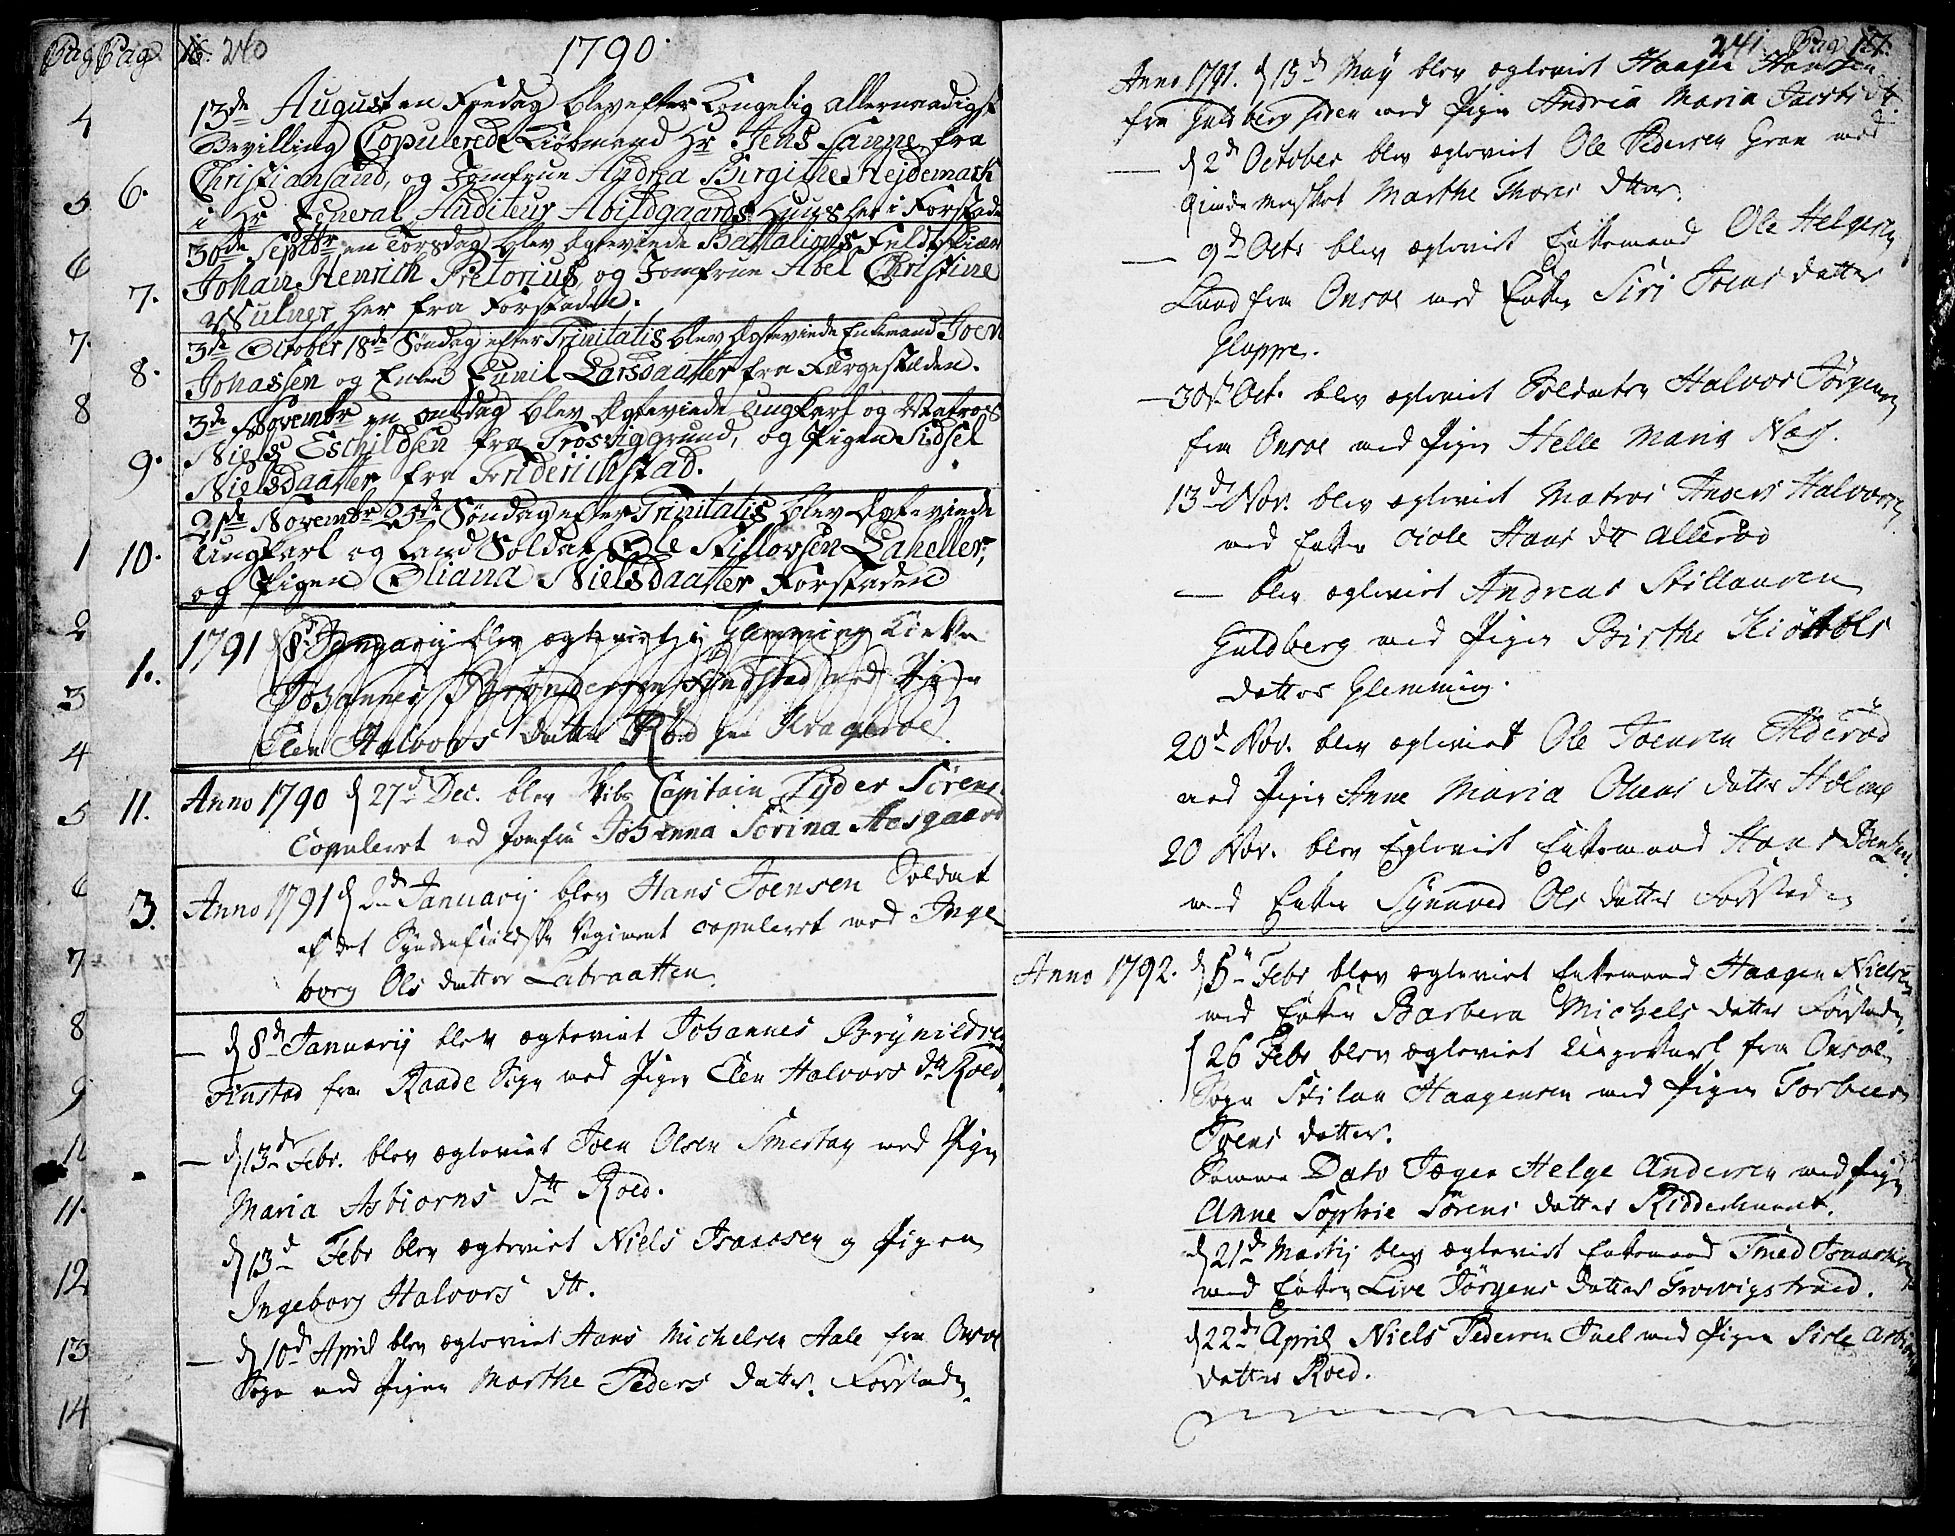 Pag Pag 16. 240
1790.
4
13de August en Fredag blev efter Kongelig allernaadigst
Bevilling Copulerede Kiøbmand Hr Jens Sanne fra
5. 6. Christiansand, og Jomfrue Andrea Birgithe Hejdemark
i Hr General Auditeur Abildgaards Huus her i Forstaden
30de Septbr en Torsdag blev Ægteviede Battalions Feldskiær
6 Johan Henrich Pretorius, og Jomfrue Abel Christine
7. her fra Forstaden.
7. 3de October 18de Søndag efter Trinitatis blev Ægteviede Enkemand Joen
8. Johassen og Enken Gunil Larsdaatter fra Færgestæden.
8 3de Novembr en onsdag blev Ægteviede ungkarl og Matros
Niels Eschildsen fra Trosviggrund, og Pigen Sidsel
9. Nielsdaatter fra Friderichstad.
21de Novembr 25de Søndag efter Trinitatis blev Ægteviede
1 10. Ungkarl og Land Soldat Ole Stillovsen Laheller,
og Pigen Oliana Nielsdaatter Forstaden
2 1791 d 8de Januarij blev ægteviet i Glemming Kirke
1. Johannes Findstad med Pigen
3 Elen Halvors datter Röd fra Kragerøe
4
5 11. Anno 1790 d 27de Dec. blev Skibs Capitain Tyder Sörens
Copuleret med Jomfru Johanna Serina Aasgaard
6 3. Anno 1791 d 2de Januarij blev Hans Joensen Soldat
af det Syndenfieldske Regiment copuleret med Inge
7 borg Ols datter Labraatten.
8 — d 8de Januarij blev ægteviet Johannes Brynildsen
Finstad fra Raade Sogn med Pigen Elen Halvors dtt Roed.
9
11 — d 13de Febr. blev ægteviet Joen Olsen Smertag med Pigen
Maria Asbiorns dtt Roed.
11. d 13d Febr blev ægteviet Niels Isaacsen og Pigen
12 Ingeborg Halvors dtt.
13 — d 10de April blev ægteviet Hans Michelsen Hale fra Onsøe
Sogn med Pigen Marthe Peders datter. Forstaden.
14
241. Pag 17.
Anno 1791. d 15de May blev ægteviet Haagen Hansen
fra Guldberg siden med Pigen Andrea Maria Jacobs dt.
— d 2de October blev ægteviet Ole Pedersen Gran med
qvinde mensket Marthe Thores dtter.
— 9de Octr blev ægteviet Enkemand Ole Helgesen
Lund fra Onsøe med Enken Siri Joens datter
Gluppe.
— 30te Oct. blev ægteviet Soldaten Halvor Jörgensen
fra Onsøe med Pigen Helle Maria Næs.
13de Nov. blev ægteviet Matros Anders Halvorsen
med Enken Hans dtt Alleröd
— blev ægteviet Andreas Stillausen
Guldberg med Pigen Birthe Kiöstols
datter Glemming.
20d Nov. blev ægteviet Ole Joensen Alderöd
med Pigen Anne Maria Olsens datter Holme
20 Nov. blev Egteviet Enkemand Hans Bentsen
med Enken Synnved Ols datter Forstaden
Anno 1792. d 5te Febr blev ægteviet Enkemand Haagen Nielsen
med Enken Barbera Michels datter Forstaden.
d 26 Febr blev ægteviet Ungekarl fra Onsøe
Sogn Stilau Haagensen med Pigen Torbiör
Joens datter.
Samme Dato Jæger Helge Andersen med Pigen
Anne Sophie Sörens datter Ridderhuuset.
d 21de Martij blev ægteviet Enkemand Smed Isaachsen
med Enken Live Jörgens datter Trosvigstrand.
d 22de April Niels Pedersen Juel med Pigen Sisle Asbiörns
datter Roed.